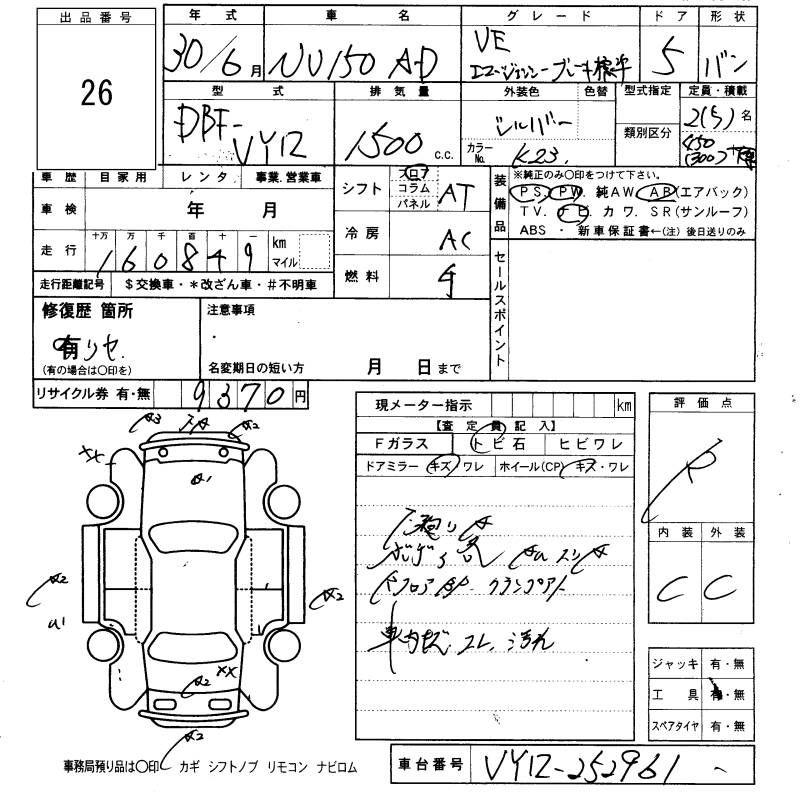 出品番号
26
年式 車名 グレード ドア 形状
30/6月 NV150 AD VE エマージェンシーブレーキ標準 5 バン
型式 排気量 外装色 色替 型式指定 定員・積載
DBF-VY12 1500 c.c. シルバー 類別区分 2(5)名
カラーNo. K23. 450(300)
車歴 自家用 レンタ 事業.営業車
車検 年 月
走行 十万 万 千 百 十 一 km マイル
160849
走行距離記号 $交換車・*改ざん車・#不明車
シフト フロア コラム パネル AT
冷房 AC
燃料 ガ
装備品
※純正のみ〇印をつけて下さい。
PS. PW. 純AW. AB(エアバック)
TV. ナビ. カワ. SR(サンルーフ)
ABS ・ 新車保証書←(注)後日送りのみ
セールスポイント
修復歴 箇所
有 リセ.
(有の場合は〇印を)
注意事項
名変期日の短い方 月 日まで
リサイクル券 有・無 9370円
現メーター指示 km
【査定員記入】
Fガラス トビ石 ヒビワレ
ドアミラー キズ・ワレ ホイール(CP) キズ・ワレ
車内キズ, コレ, 汚れ
評価点
R
内装 外装
C C
ジャッキ 有・無
工具 有・無
スペアタイヤ 有・無
A3
A2
XX
A1
A2
U1
A2
XX
A2
A2
事務局預り品は〇印 カギ シフトノブ リモコン ナビロム
車台番号 VY12-252961